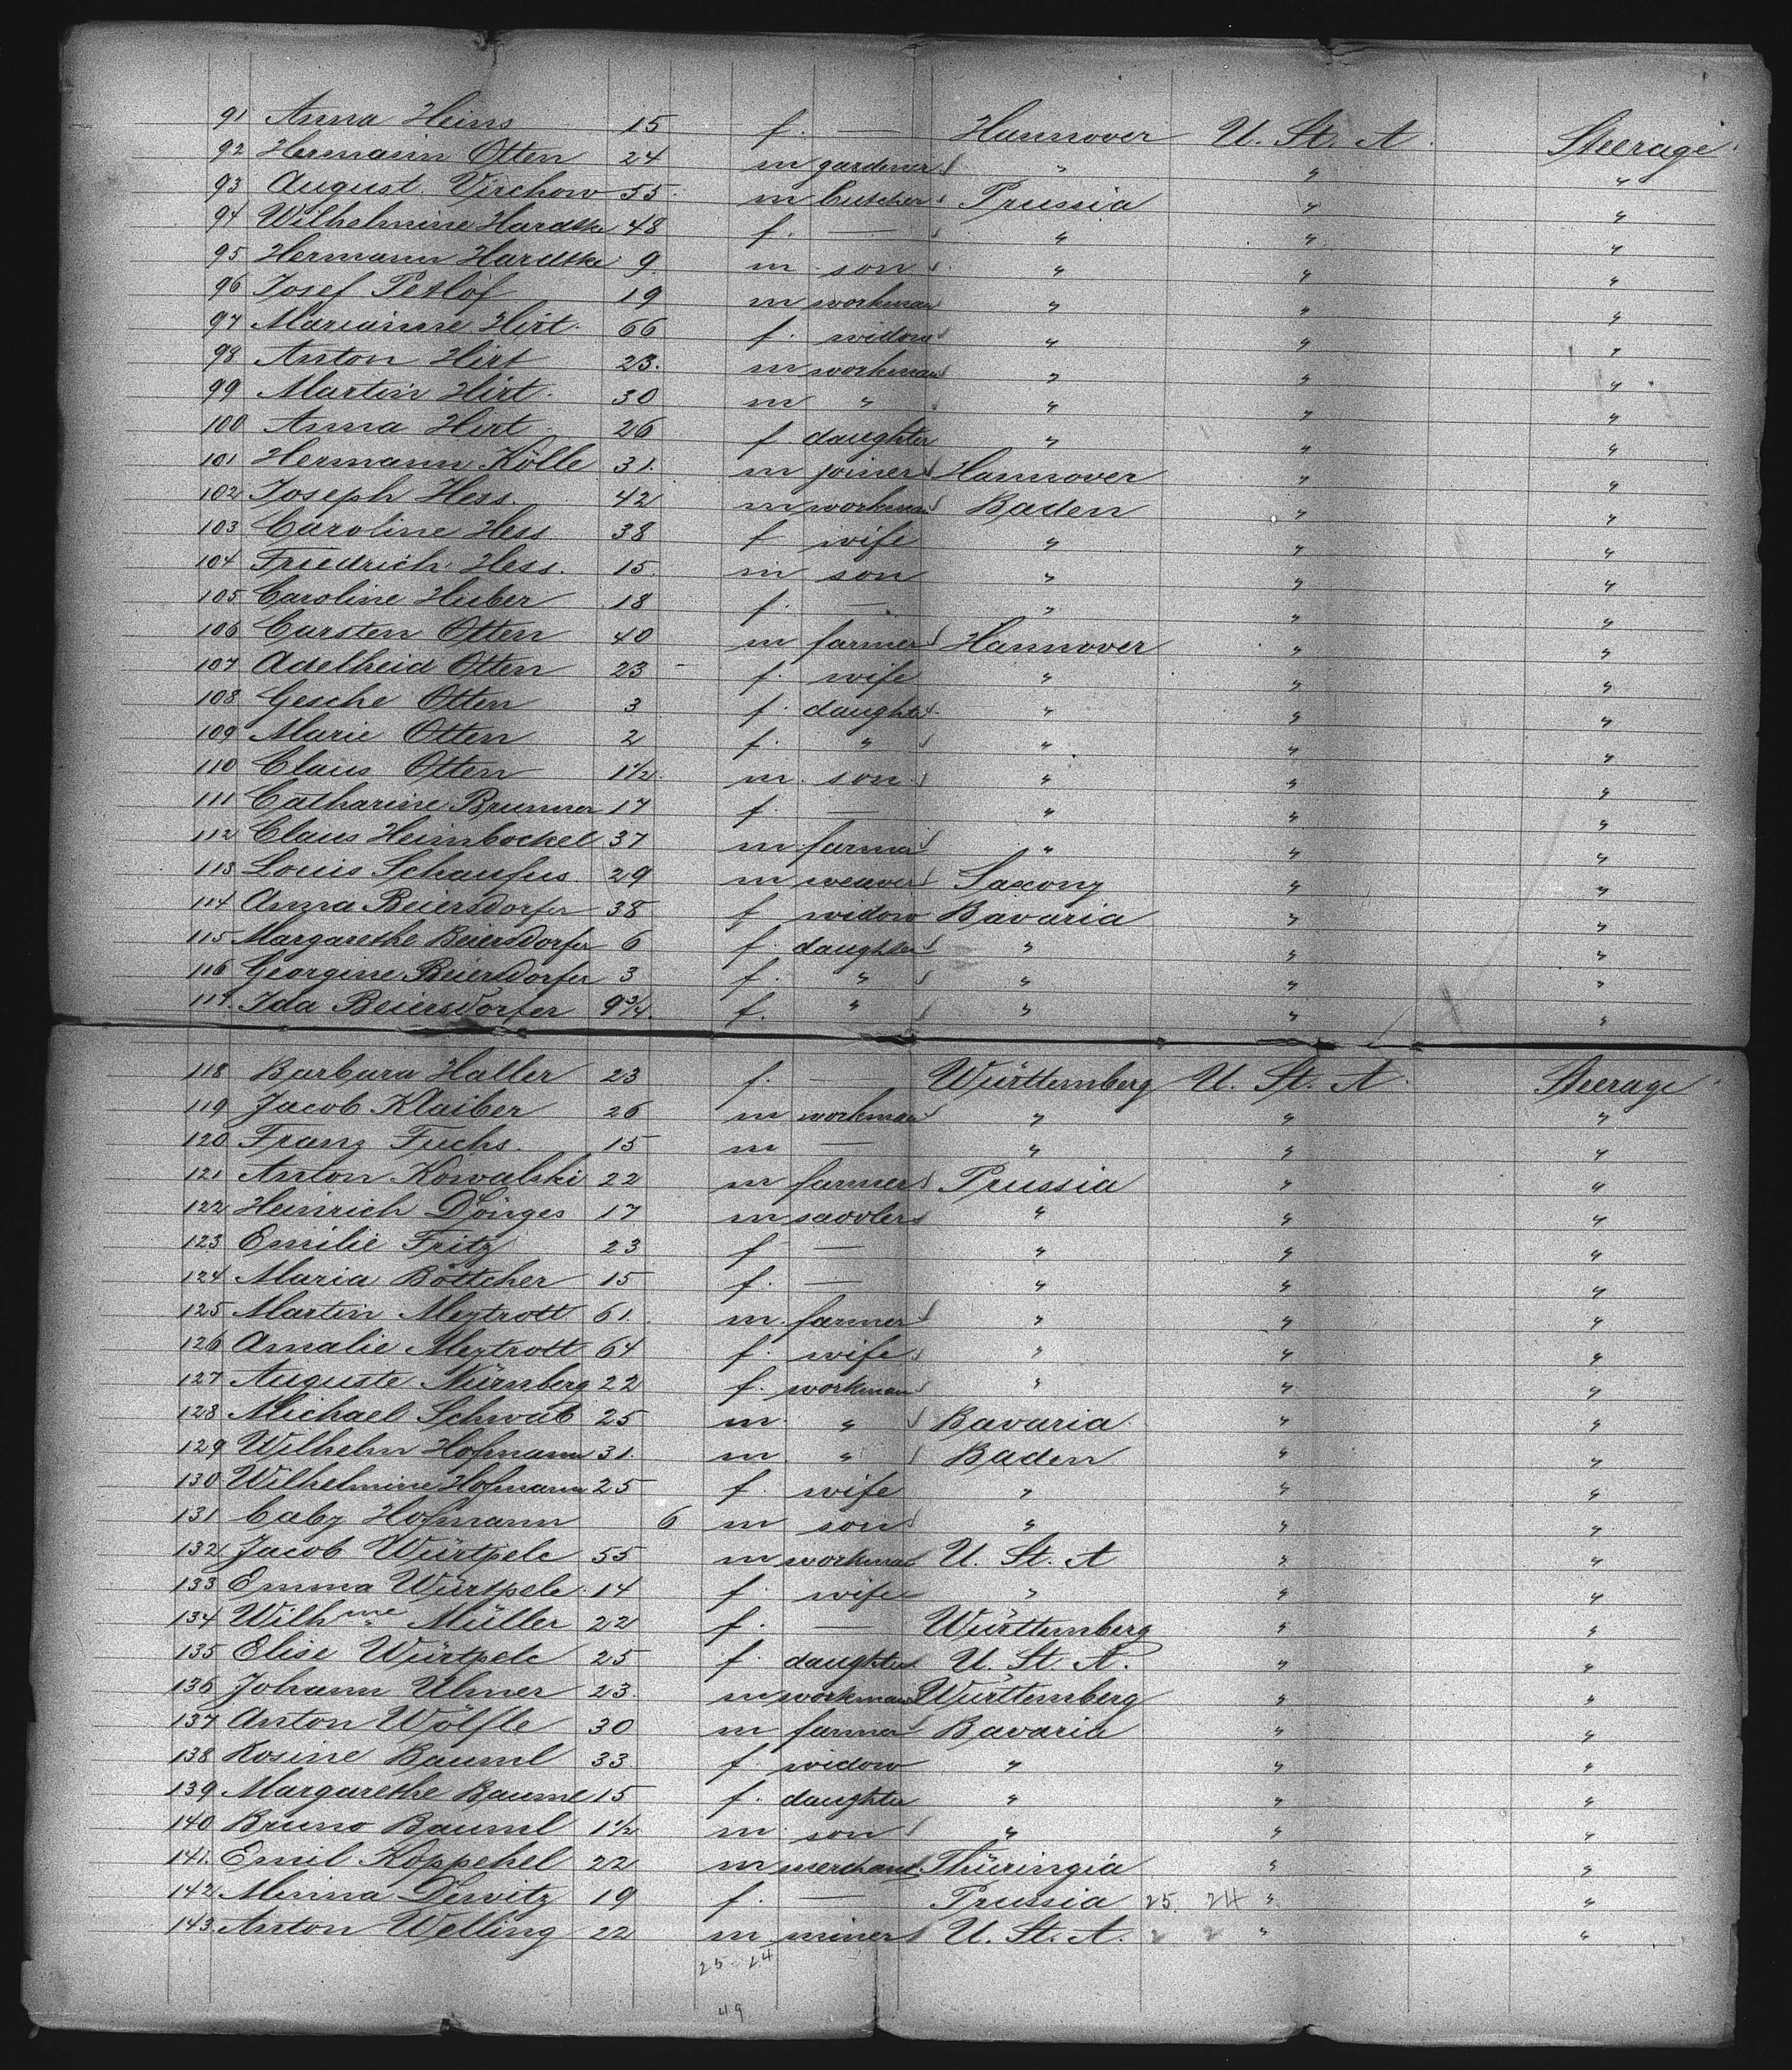 91 Anna Heins 15 f. — Hannover U. St. A. Steerage
92 Hermann Otten 24 m gardener " " "
93 August Virchow 55 m butcher Prussia " "
94 Wilhelmine Hardtke 48 f. — " " "
95 Hermann Hardtke 9 m son " " "
96 Josef Petlof 19 m workman " " "
97 Marianne Hirt 66 f. widow " " "
98 Anton Hirt 23. m workman " " "
99 Martin Hirt 30 m " " " "
100 Anna Hirt 26 f daughter " " "
101 Hermann Kölle 31. m joiner Hannover " "
102 Joseph Hess 42 m workman Baden " "
103 Caroline Hess 38 f wife " " "
104 Friedrich Hess. 15. m son " " "
105 Caroline Huber 18 f. — " " "
106 Carsten Otten 40 m farmer Hannover " "
107 Adelheid Otten 23 f. wife " " "
108 Gesche Otten 3 f. daughter " " "
109 Marie Otten 2 f. " " " "
110 Claus Otten 1 1/2. m. son " " "
111 Catharine Brunner 17 f. — " " "
112 Claus Heimbockel 37 m farmer " " "
113 Louis Schaufus 29 m weaver Saxony " "
114 Anna Beiersdorfer 38 f widow Bavaria " "
115 Margarethe Beiersdorfer 6 f. daughter " " "
116 Georgine Beiersdorfer 3 f. " " " "
117. Ida Beiersdorfer 9 3/4. f. " " " "
118 Barbara Haller 23 f. — Württemberg U. St. A. Steerage
119 Jacob Klaiber 26 m workman " " "
120 Franz Fuchs. 15 m — " " "
121 Anton Kowalski 22 m farmer Prussia " "
122 Heinrich Dönges 17 m saddler " " "
123 Emilie Fritz 23 f — " " "
124 Maria Böttcher 15 f. — " " "
125 Martin Meytrott 61. m. farmer " " "
126 Amalie Meytrott 64 f. wife " " "
127 Auguste Nürnberg 22 f. workman " " "
128 Michael Schwab 25 m. " Bavaria " "
129 Wilhelm Hofmann 31. m. " Baden " "
130 Wilhelmine Hofmann 25 f. wife " " "
131 Caby Hofmann 6 m son " " "
132 Jacob Würtpele 55 m workman U. St. A " "
133 Emma Würtpele 14 f. wife " " "
134 Wilhme Müller 22 f. — Württemberg " "
135 Elise Würtpele 25 f. daughter U. St. A. " "
136 Johann Ulmer 23. m workman Württemberg " "
137 Anton Wölfle 30 m farmer Bavaria " "
138 Rosine Bauml 33. f. widow " " "
139 Margarethe Bauml 15 f. daughter " " "
140 Bruno Bauml 1 1/2 m. son " " "
141. Emil Koppehel 22 m merchant Thüringia " "
142 Minna Dewitz 19 f. — Prussia 25. 24 " "
143. Anton Welling 22 m miner U. St. A. 2 2 " "
25 24
49